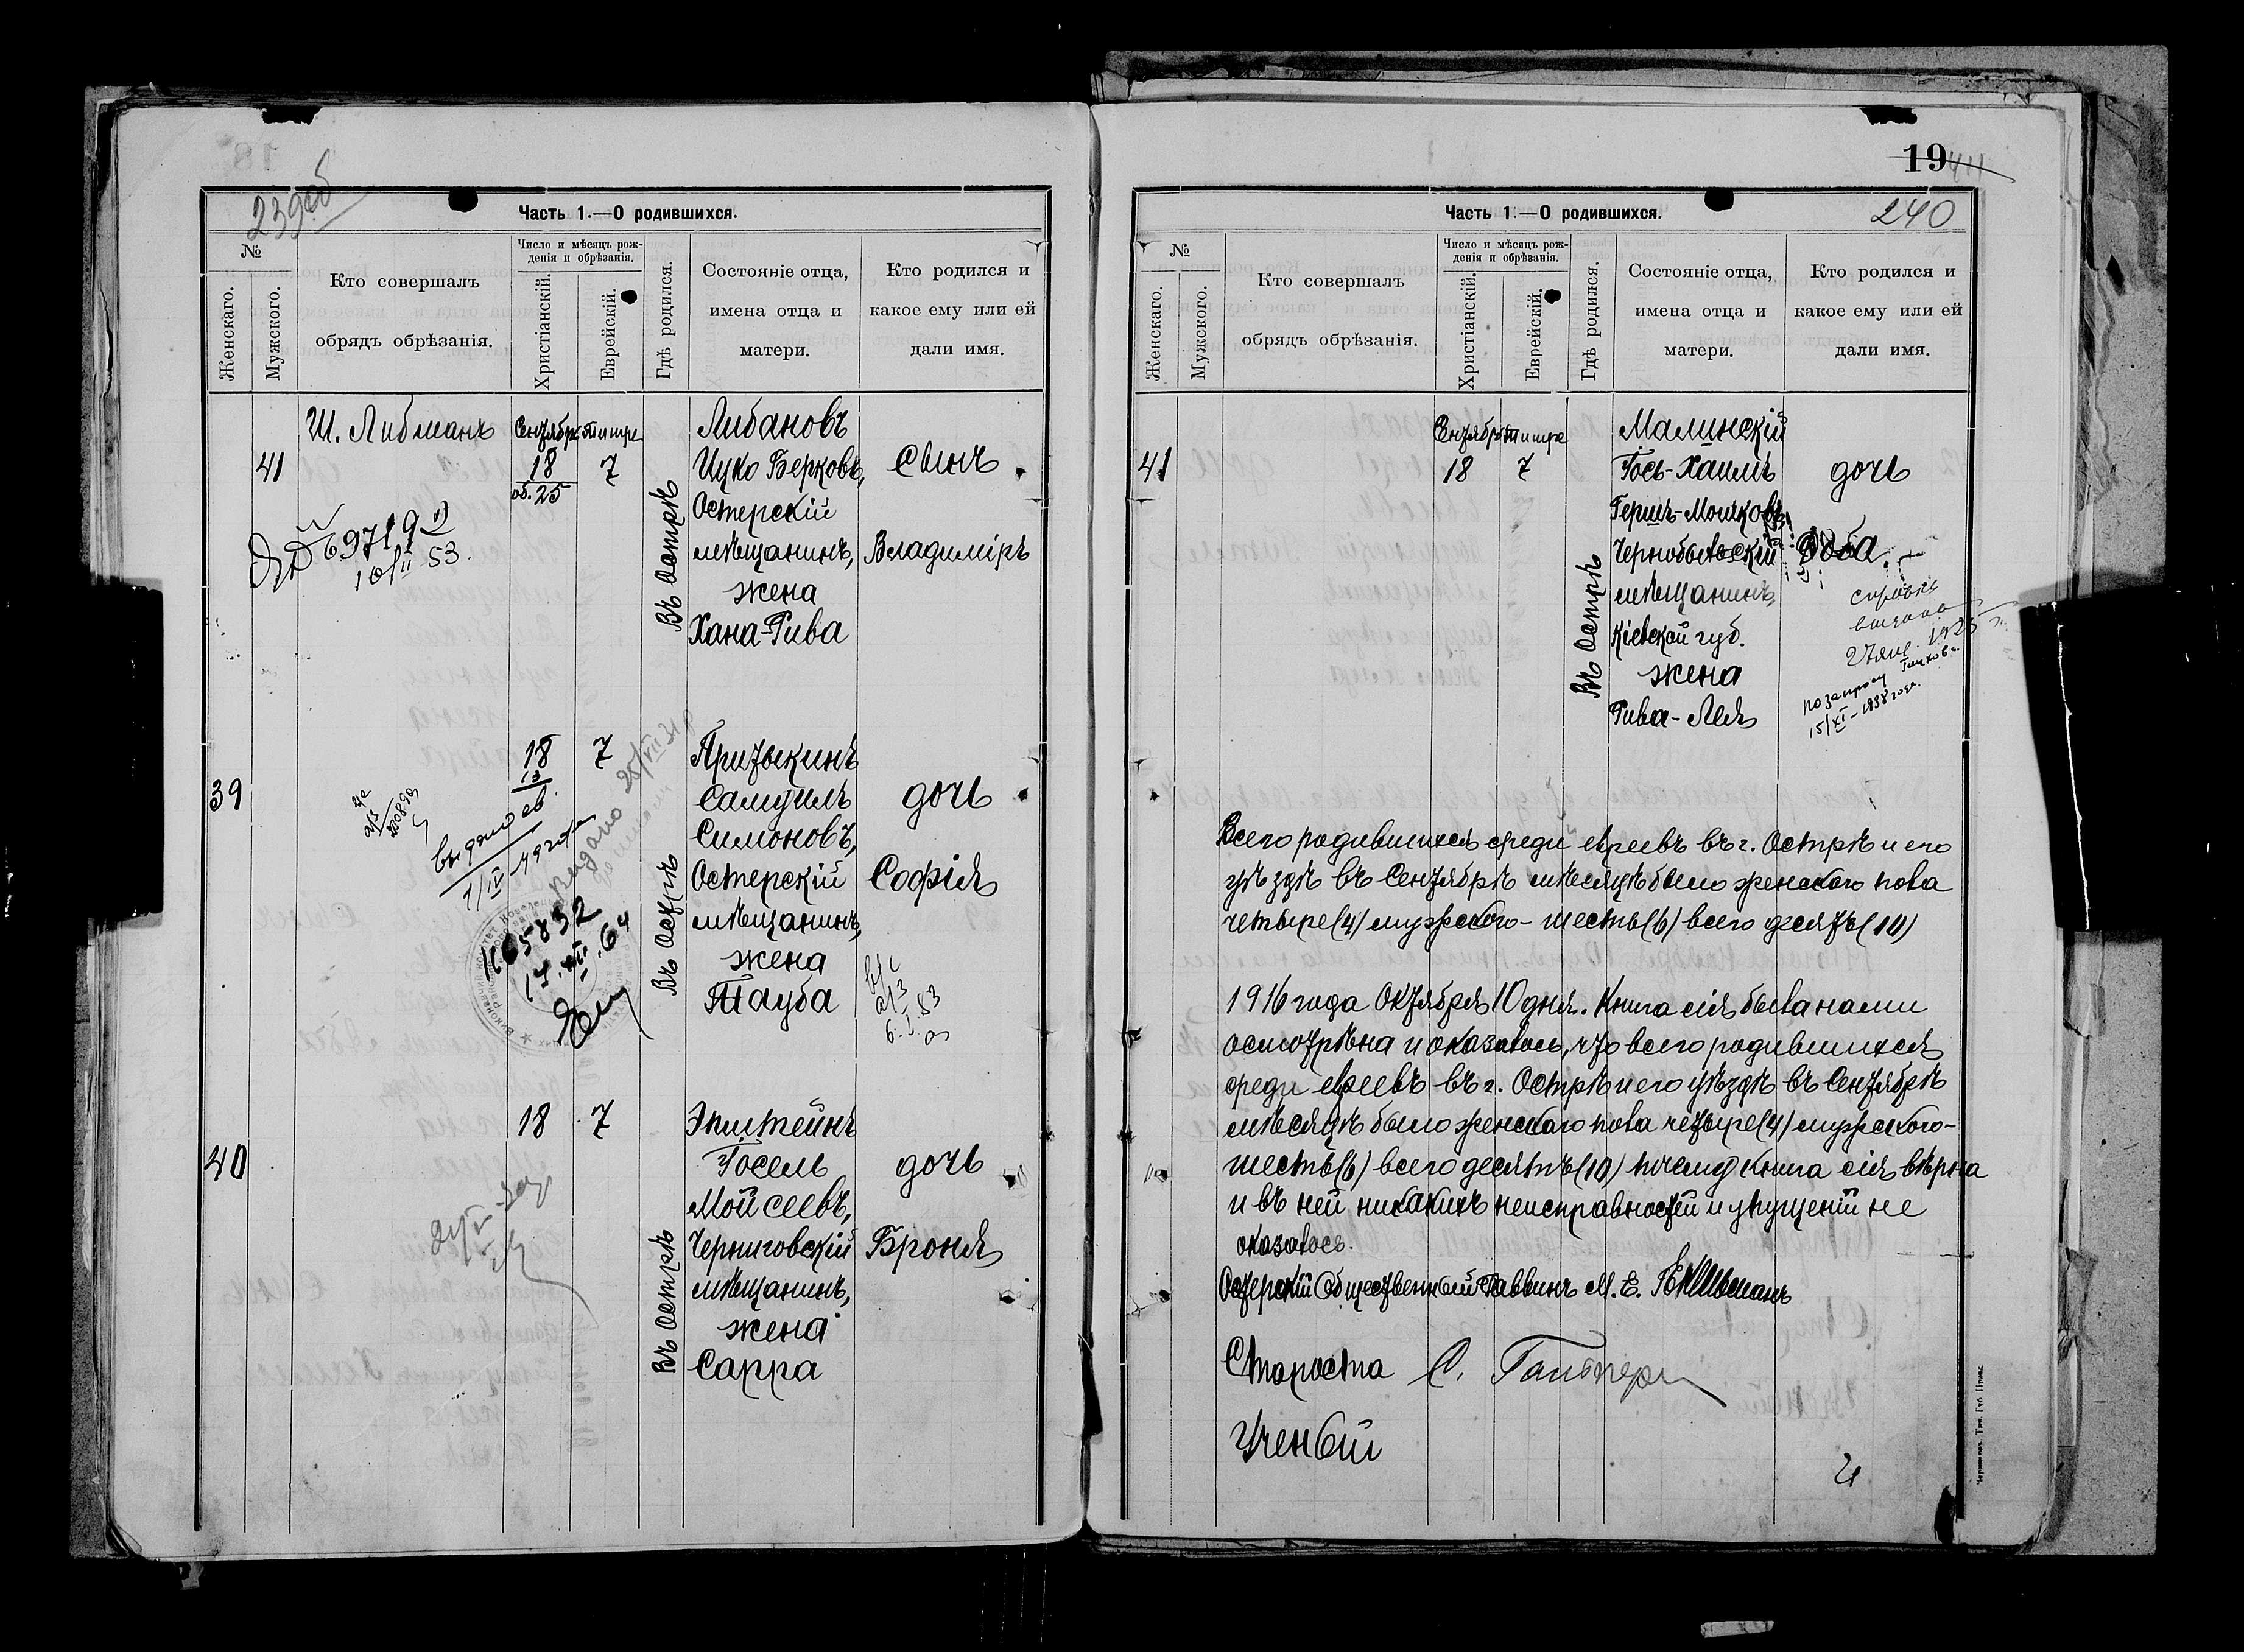 239об
Часть 1.—О родившихся.
№
Женскаго.
Мужского.
Кто совершалъ
обрядъ обрѣзанія.
Число и мѣсяцъ рож-
денія и обрѣзанія.
Христіанскій.
Еврейскій.
Гдѣ родился.
Состояніе отца,
имена отца и
матери.
Кто родился и
какое ему или ей
дали имя.
41
Ш. Либманъ
Сентябрь
18
об. 25
Тишре
7
Въ Острѣ
Либановъ
Ицко Берковъ,
Остерскій
мѣщанинъ,
жена
Хана-Рива
сынъ
Владиміръ
697190
10/II 53.
39
18
7
Въ Острѣ
Призыкинъ
Самуилъ
Симоновъ,
Остерскій
мѣщанинъ,
жена
Тауба
дочь
Софія
выдано св.
1/IV-49 года
Выдано 25/VII 31 г
1165832
17.XII.64
6.I.53
40
18
7
Въ Острѣ
Эпштейнъ
Іосель
Мойсеевъ,
Черниговскій
мѣщанинъ,
жена
Сарра
дочь
Броня
19
240
Часть 1.—О родившихся.
№
Женскаго.
Мужского.
Кто совершалъ
обрядъ обрѣзанія.
Число и мѣсяцъ рож-
денія и обрѣзанія.
Христіанскій.
Еврейскій.
Гдѣ родился.
Состояніе отца,
имена отца и
матери.
Кто родился и
какое ему или ей
дали имя.
41
Сентябрь
18
Тишре
7
Въ Острѣ
Малинскій
Іось-Хаимъ
Гершъ-Мошковъ
Чернобыльскій
мѣщанинъ,
Кіевской губ.
жена
Рива-Лея
дочь
справка
выдана
по запросу
15/XI-1938 года.
Всего родившихся среди евреевъ въ г. Острѣ и его
уѣздѣ въ Сентябрѣ мѣсяцѣ было женскаго пола
четыре (4) мужского - шесть (6) всего десять (10)
1916 года Октября 10 дня. Книга сія была нами
осмотрѣна и оказалось, что всего родившихся
среди евреевъ въ г. Острѣ и его уѣздѣ въ Сентябрѣ
мѣсяцѣ было женскаго пола четыре (4) мужского-
шесть (6) всего десять (10) почему книга сія вѣрна
и въ ней никакихъ неисправностей и упущеній не
оказалось.
Остерскій Общественный Раввинъ М. Е.
Староста С.
Ученый